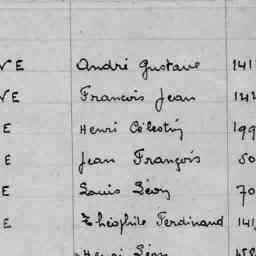 VE André Gustave 141
VE Francois Jean 142
E Henri Célestin 199
E Jean François 50
E Louis Léon 70
E Théophile Ferdinand 141
Henri Léon